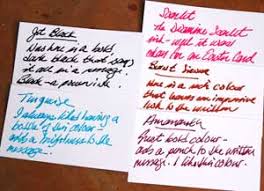 Jet Black
Nus hre is a bold
dark black that says
it all in a message.
Black - a
Turquoise
I always like having a
bottle of this colour -
adds a brightness to the
message.
Scarlet
the Diamine Scarlet
ink - what it used
Easter Card
Burnt Sienna
Here is a rich colour
that leaves an impressive
look to the written
Amaranth
Great bold colour -
adds a punch to the written
message. I like this colour.